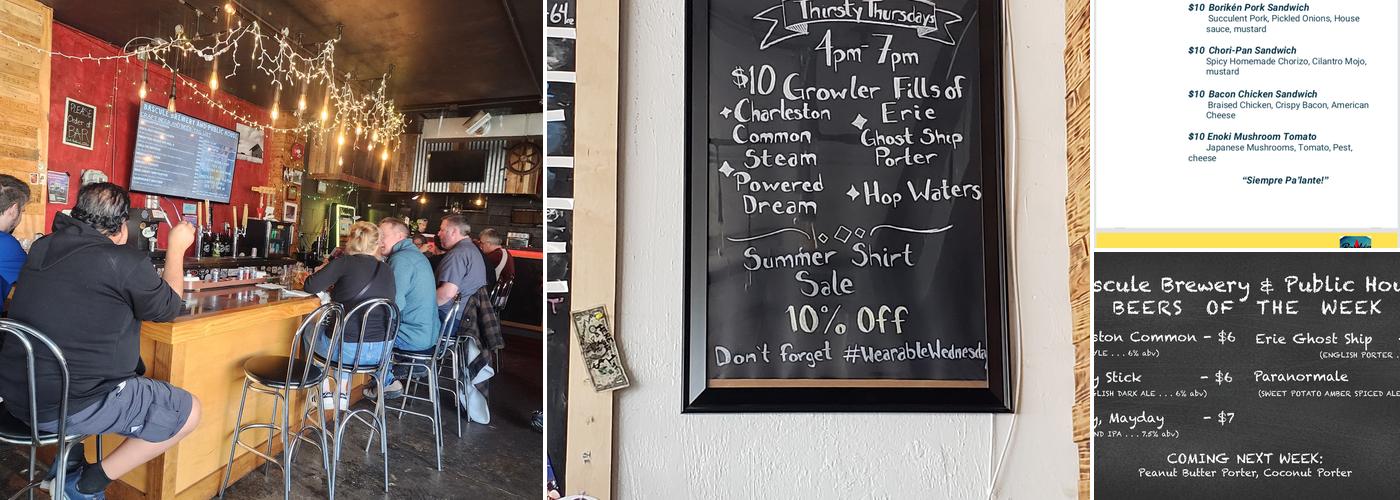 PLEASE
Order at
BAR
BASCULE BREWERY AND PUBLIC HOUSE
CRAFT BEER AND BEER TAP LIST
64
Thirsty Thursdays
4pm-7pm
$10 Growler Fills of
Charleston Common
Steam Powered Dream
Erie Ghost Ship Porter
Hop Waters
Summer Shirt
Sale
10% Off
Don't forget #WearableWednesda
$10 Borikén Pork Sandwich
Succulent Pork, Pickled Onions, House
sauce, mustard
$10 Chori-Pan Sandwich
Spicy Homemade Chorizo, Cilantro Mojo,
mustard
$10 Bacon Chicken Sandwich
Braised Chicken, Crispy Bacon, American
Cheese
$10 Enoki Mushroom Tomato
Japanese Mushrooms, Tomato, Pest,
cheese
"Siempre Pa'lante!"
scule Brewery & Public Hou
BEERS OF THE WEEK
ston Common - $6
YLE . . . 6% abv)
Erie Ghost Ship -
(ENGLISH PORTER .
y Stick - $6
GLISH DARK ALE . . . 6% abv)
Paranormale
(SWEET POTATO AMBER SPICED ALE
y, Mayday - $7
ND IPA . . . 7.5% abv)
COMING NEXT WEEK:
Peanut Butter Porter, Coconut Porter